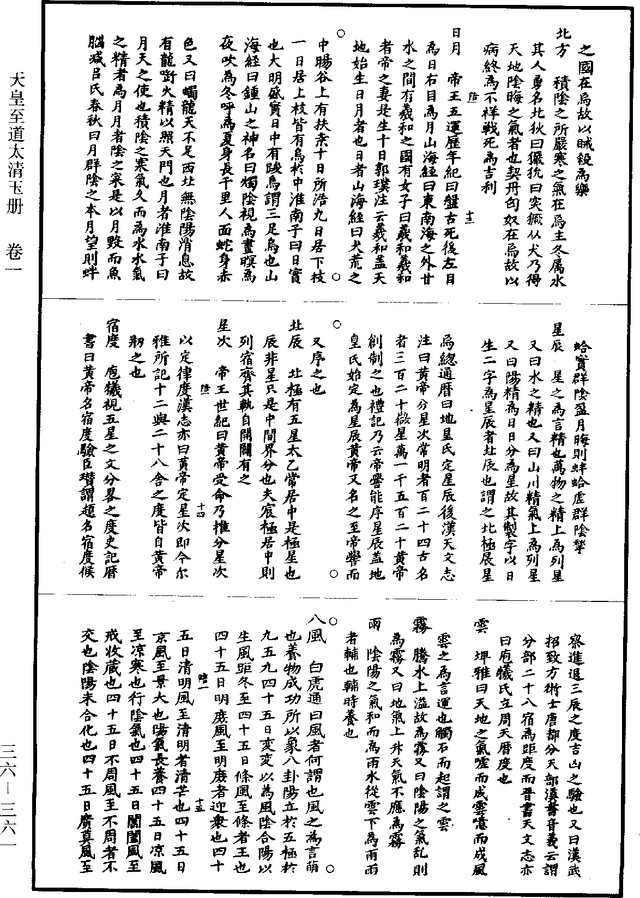 天皇至道太清玉册 卷一
之國在焉故以賊鋭爲樂
北方 積陰之所嚴寒之氣在焉主冬屬水
其人勇名北狄曰玁狁曰突厥从犬乃得
天地陰晦之氣者也契丹匈奴在焉故以
病終爲不祥戰死爲吉利
日月 帝王五運歷年紀曰盤古死後左目
爲日右目爲月山海經曰東南海之外甘
水之間有羲和之國有女子曰羲和羲和
者帝之妻是生十日郭璞注云羲和蓋天
地始生日月者也日者山海經曰大荒之
中暘谷上有扶桑十日所浴九日居下枝
一日居上枝皆有烏於中淮南子曰日實
也大明盛實日中有踆烏謂三足烏也山
海經曰鍾山之神名曰燭陰視爲晝瞑爲
夜吹爲冬呼爲夏身長千里人面蛇身赤
色又曰燭龍天不足西北無陰陽消息故
有龍銜火精以照天門也月者淮南子曰
月天之使也積陰之寒氣久而爲水水氣
之精者爲月月者陰之宗是以月毀而魚
腦減吕氏春秋曰月群陰之本月望則蚌
蛤實群陰盈月晦則蚌蛤虛群陰揫
星辰 星之爲言精也萬物之精上爲列星
又曰水之精也又曰山川精氣上爲列星
又曰陽精爲日日分爲星故其製字以日
生二字爲星辰者北辰也謂之北極晨星
爲總通曆曰地皇氏定星辰後漢天文志
注曰黃帝分星次常明者百二十四古名
者三百二十微星萬一千五百二十黃帝
創制之也禮記乃云帝嚳能序星辰蓋地
皇氏始定爲星辰黃帝又名之至帝嚳而
又序之也
北辰 北極有五星太乙常居中是極星也
辰非星只是中間界分也夫宸極居中則
列宿齊其軌自開闢有之
星次 帝王世紀曰黃帝受命乃推分星次
以定律度漢志亦曰黃帝定星次即今尔
雅所記十二與二十八舍之度皆自黃帝
剏之也
宿度 庖犧視五星之文分晷之度史記曆
書曰黃帝名宿度驗臣瓉謂題名宿度候
察進退三辰之度吉凶之驗也又曰漢武
招致方術士唐都分天部漢書音義云謂
分部二十八宿爲距度而晉書天文志亦
曰庖犧氏立周天曆度也
雲 埤雅曰天地之氣噓而成雲噫而成風
雲之爲言運也觸石而起謂之雲
霧 騰水上溢故爲霧又曰陰陽之氣亂則
爲霧又曰地氣上升天氣不應爲霧
雨 陰陽之氣和而爲雨水從雲下爲雨雨
者輔也輔時養也
八風 白虎通曰風者何謂也風之爲言萌
也養物成功所以象八卦陽立於五極於
九五九四十五日變變以爲風陰合陽以
生風距冬至四十五日條風至條者王也
四十五日明庶風至明庶者迎衆也四十
五日清明風至清明者清芒也四十五日
京風至景大也陽氣長養四十五日凉風
至凉寒也行陰氣也四十五日閶闔風至
戒收藏也四十五日不周風至不周者不
交也陰陽未合化也四十五日廣莫風至
三六—三六一